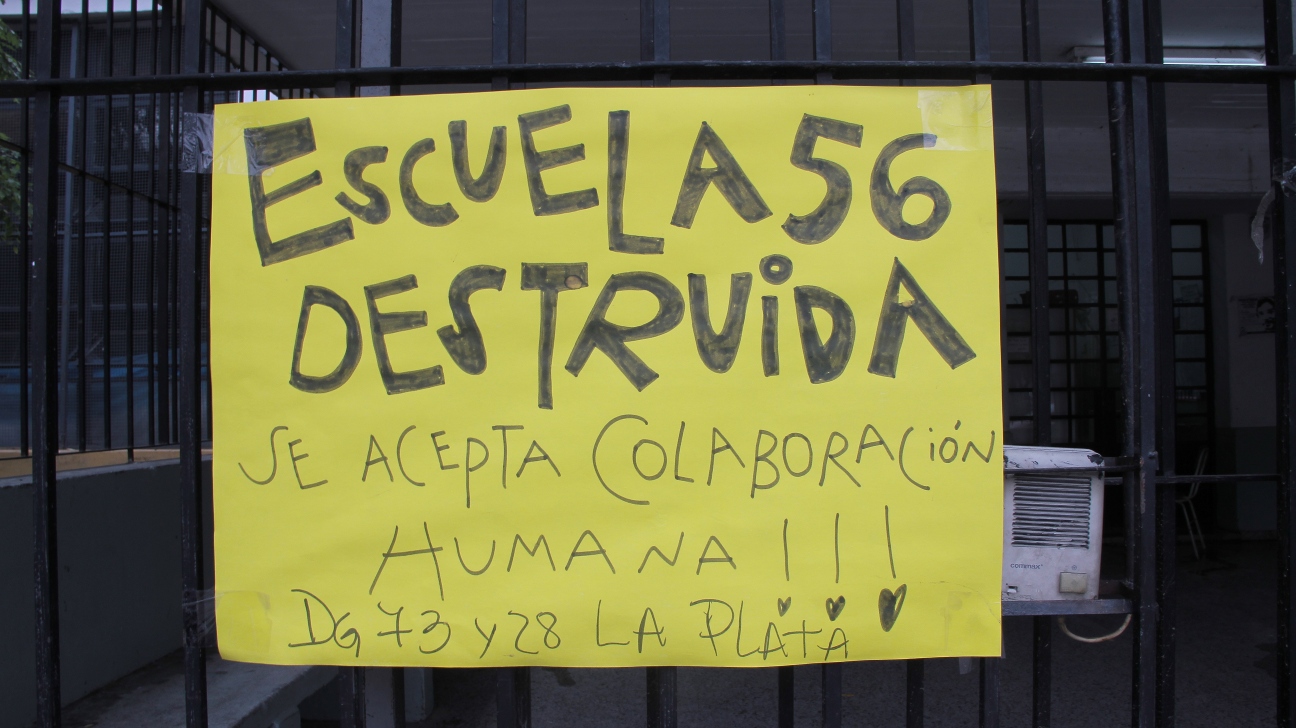 ESCUELA 56
DESTRUiDA
SE ACEPTA COLABORACiÓN
HUMANA !!!
DG 73 y 28 LA PLATA
commax